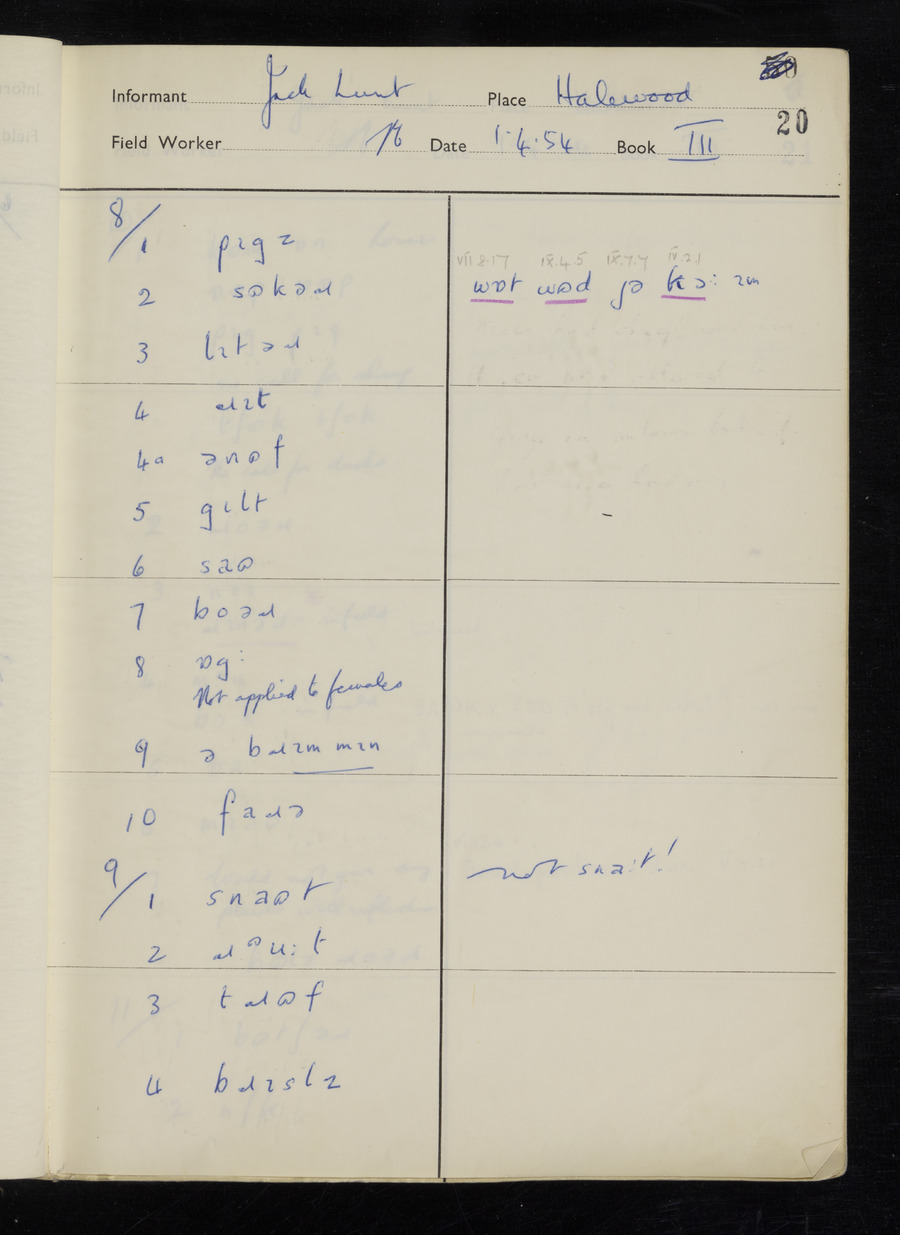 Informant Jack Lunt Place Halewood
20
Field Worker Date 1·4·54 Book III
8/1 pɪgz
VII 8.17 IX.4.5 IX.7.7 IV.2.1
2 sɷkəɹ wɒt wɷd jə kɔ: ɪm
3 lɪtəɹ
4 ɹɪt
4a ənɷf
5 gɪlt
6 saɷ
7 boəɹ
8 ɒg:
Not applied to females
9 ə bɹɪmmɪn
10 faɹə
9/1 snaɷt not sna:t!
2 ɹᶷu:t
3 tɹɷf
4 bɹɪslz